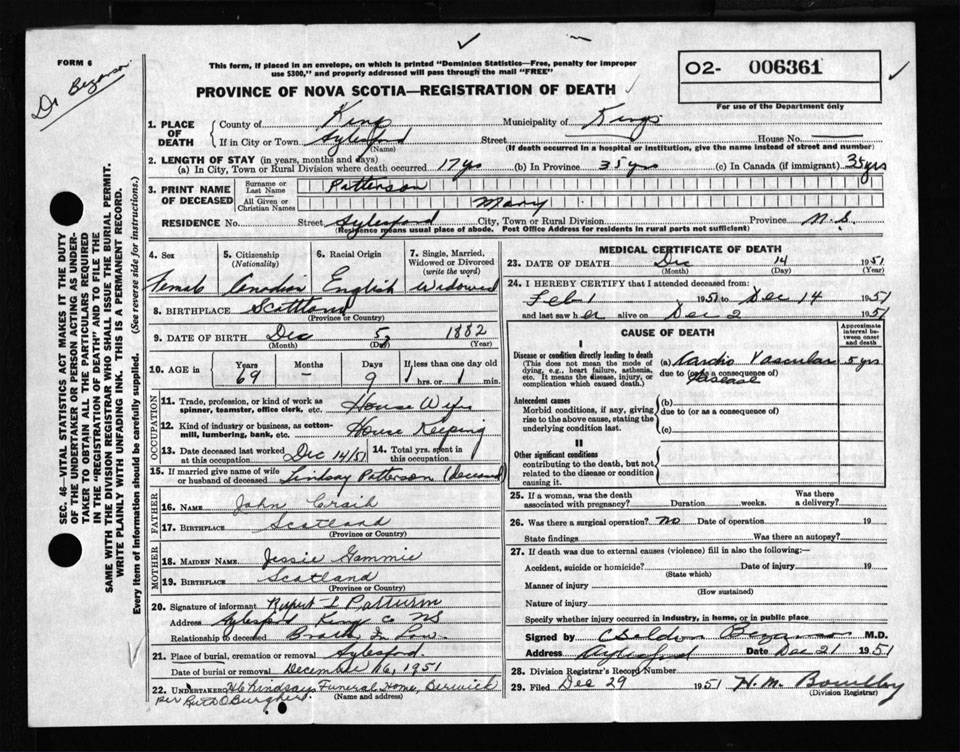 FORM 6
Dr Bezanson
This form, if placed in an envelope, on which is printed "Dominion Statistics—Free, penalty for improper
use $300," and properly addressed will pass through the mail "FREE"
PROVINCE OF NOVA SCOTIA—REGISTRATION OF DEATH
O2- 006361
For use of the Department only
1. PLACE OF DEATH County of Kings Municipality of Kings
If in City or Town Aylesford Street House No.
(Name) (If death occurred in a hospital or institution, give the name instead of street and number)
2. LENGTH OF STAY (in years, months and days)
(a) In City, Town or Rural Division where death occurred 17 yrs (b) In Province 35 yrs (c) In Canada (if immigrant) 35 yrs
3. PRINT NAME OF DECEASED Surname or Last Name Patterson
All Given or Christian Names Mary
RESIDENCE No. Street Aylesford City, Town or Rural Division Province N.S.
(Residence means usual place of abode. Post Office Address for residents in rural parts not sufficient)
4. Sex 5. Citizenship (Nationality) 6. Racial Origin 7. Single, Married, Widowed or Divorced (write the word)
Female Canadian English Widowed
8. BIRTHPLACE Scottland
(Province or Country)
9. DATE OF BIRTH Dec 5 1882
(Month) (Day) (Year)
10. AGE in Years Months Days If less than one day old
69 - 9 hrs. or min.
OCCUPATION
11. Trade, profession, or kind of work as spinner, teamster, office clerk, etc. House Wife
12. Kind of industry or business, as cotton-mill, lumbering, bank, etc. House Keeping
13. Date deceased last worked at this occupation Dec 14/51 14. Total yrs. spent in this occupation
15. If married give name of wife or husband of deceased Lindsay Patterson
FATHER
16. NAME John
17. BIRTHPLACE Scotland
(Province or Country)
MOTHER
18. MAIDEN NAME Jessie Gammie
19. BIRTHPLACE Scotland
(Province or Country)
20. Signature of informant L Patterson
Address Aylesford Kings Co NS
Relationship to deceased Broth In Law
21. Place of burial, cremation or removal Aylesford.
Date of burial or removal December 16, 1951
22. UNDERTAKER Lindsays Funeral Home, Berwick
(Name and address)
per Ruth O
MEDICAL CERTIFICATE OF DEATH
23. DATE OF DEATH Dec 14 1951
(Month) (Day) (Year)
24. I HEREBY CERTIFY that I attended deceased from:
Feb 1 1951 to Dec 14 1951
and last saw her alive on Dec 2 1951
CAUSE OF DEATH
Approximate interval between onset and death
I
Disease or condition directly leading to death
(This does not mean the mode of dying, e.g., heart failure, asthenia, etc. It means the disease, injury, or complication which caused death.)
(a) Kardio Vascular 5 yrs
due to (or as a consequence of)
disease
Antecedent causes
Morbid conditions, if any, giving rise to the above cause, stating the underlying condition last.
(b)
due to (or as a consequence of)
(c)
II
Other significant conditions
contributing to the death, but not related to the disease or condition causing it.
25. If a woman, was the death associated with pregnancy? Duration weeks. Was there a delivery?
26. Was there a surgical operation? no Date of operation 19
State findings Was there an autopsy?
27. If death was due to external causes (violence) fill in also the following:—
Accident, suicide or homicide? Date of injury 19
(State which)
Manner of injury
(How sustained)
Nature of injury
Specify whether injury occurred in Industry, in home, or in public place
Signed by Bezanson M.D.
Address Aylesford Date Dec 21 1951
28. Division Registrar's Record Number
29. Filed Dec 29 1951 H.M.
(Division Registrar)
SEC. 46—VITAL STATISTICS ACT MAKES IT THE DUTY
OF THE UNDERTAKER OR PERSON ACTING AS UNDER-
TAKER TO OBTAIN ALL THE PARTICULARS REQUIRED
IN THE "REGISTRATION OF DEATH" AND TO FILE THE
SAME WITH THE DIVISION REGISTRAR WHO SHALL ISSUE THE BURIAL PERMIT.
WRITE PLAINLY WITH UNFADING INK. THIS IS A PERMANENT RECORD.
Every item of Information should be carefully supplied. (See reverse side for instructions.)